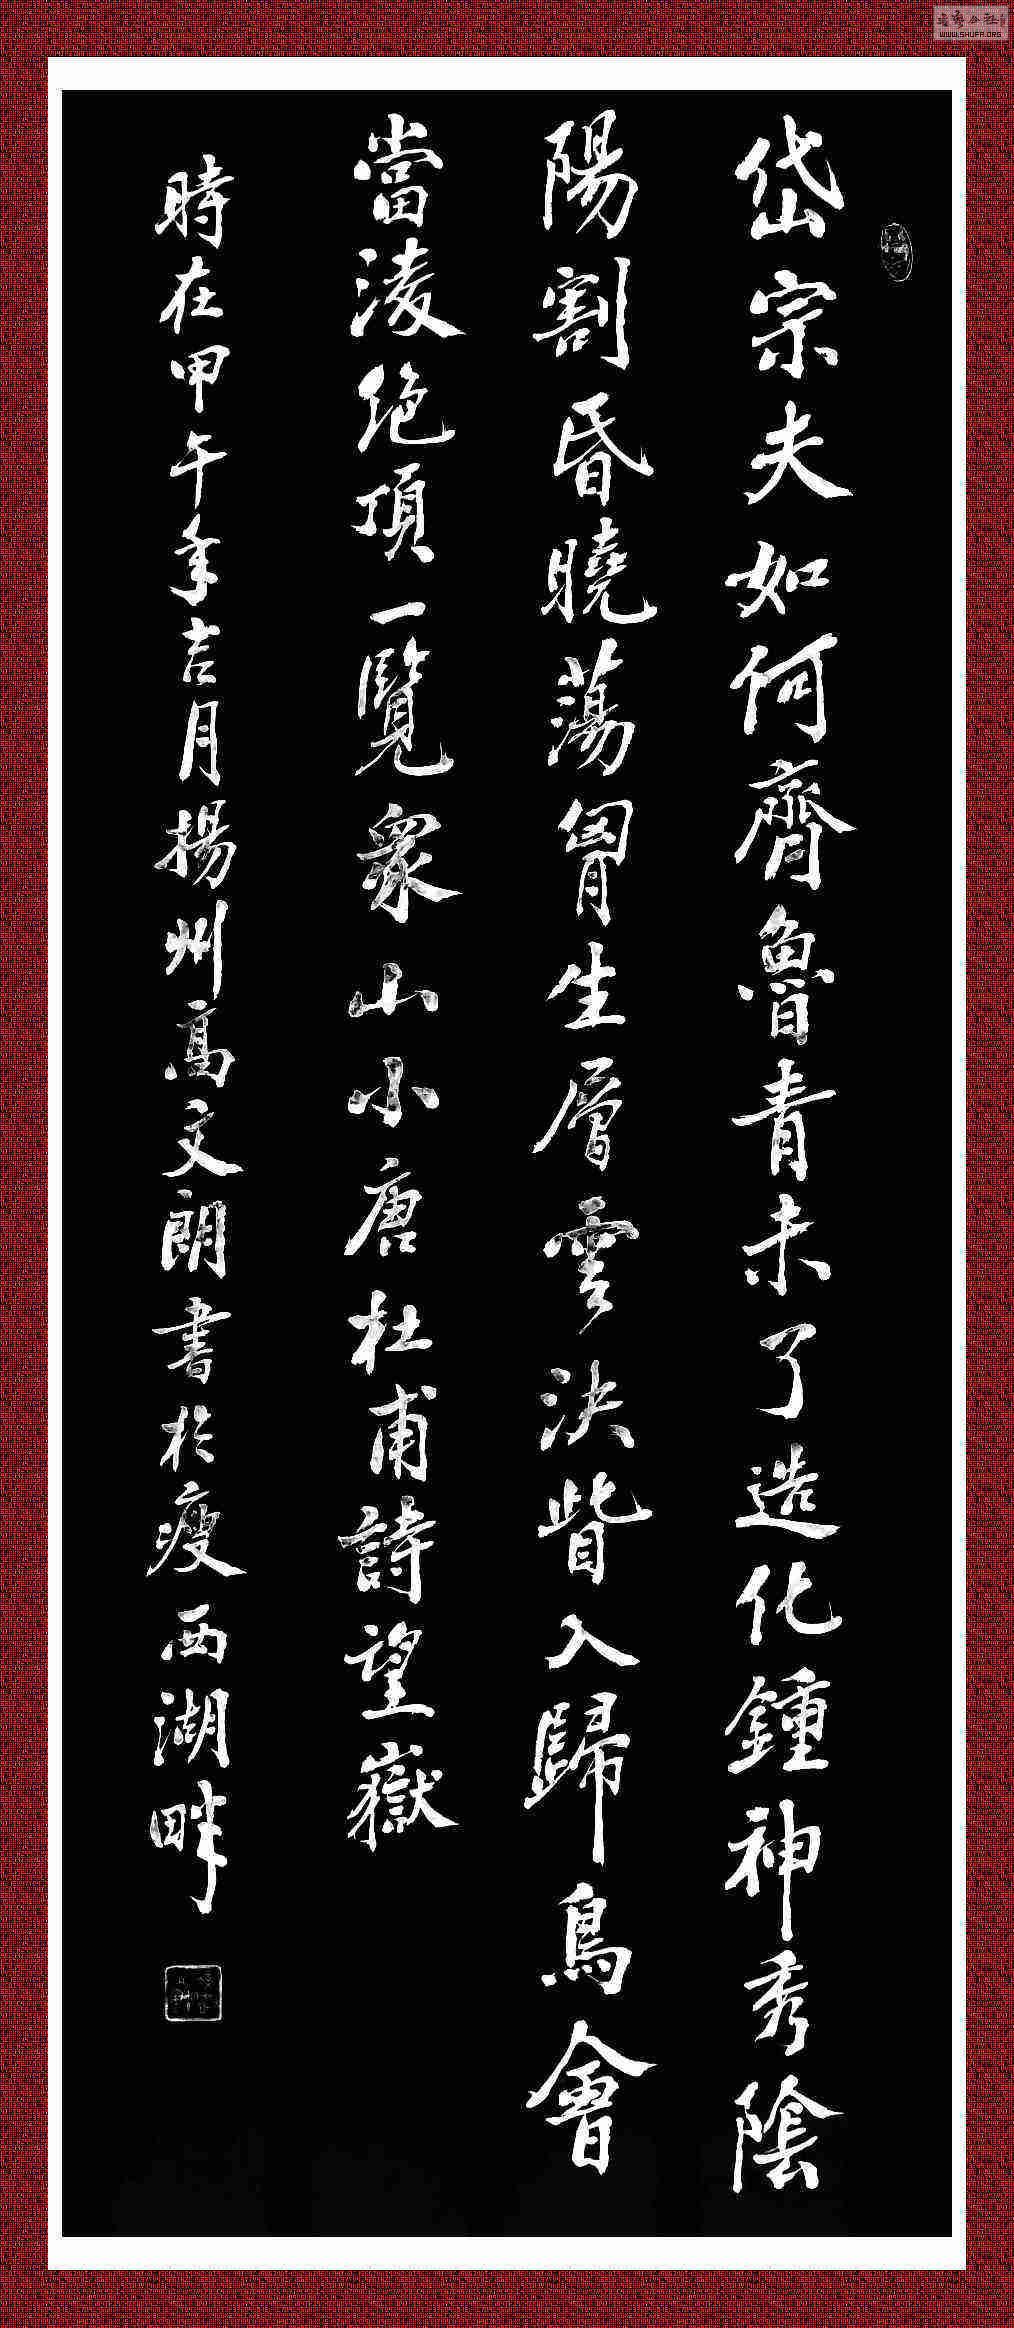 岱宗夫如何齊魯青未了造化鍾神秀陰
陽割昏曉蕩胷生層雲決眥入歸鳥會
當淩絶頂一覽衆山小唐杜甫詩望嶽
時在甲午年吉月揚州高文朗書於瘦西湖畔
WWW.SHUFA.ORG